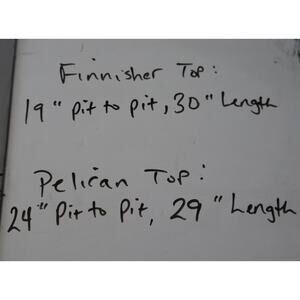 Finnisher Top:
19" pit to pit, 30" Length
Pelican Top:
24" Pit to Pit, 29" Length